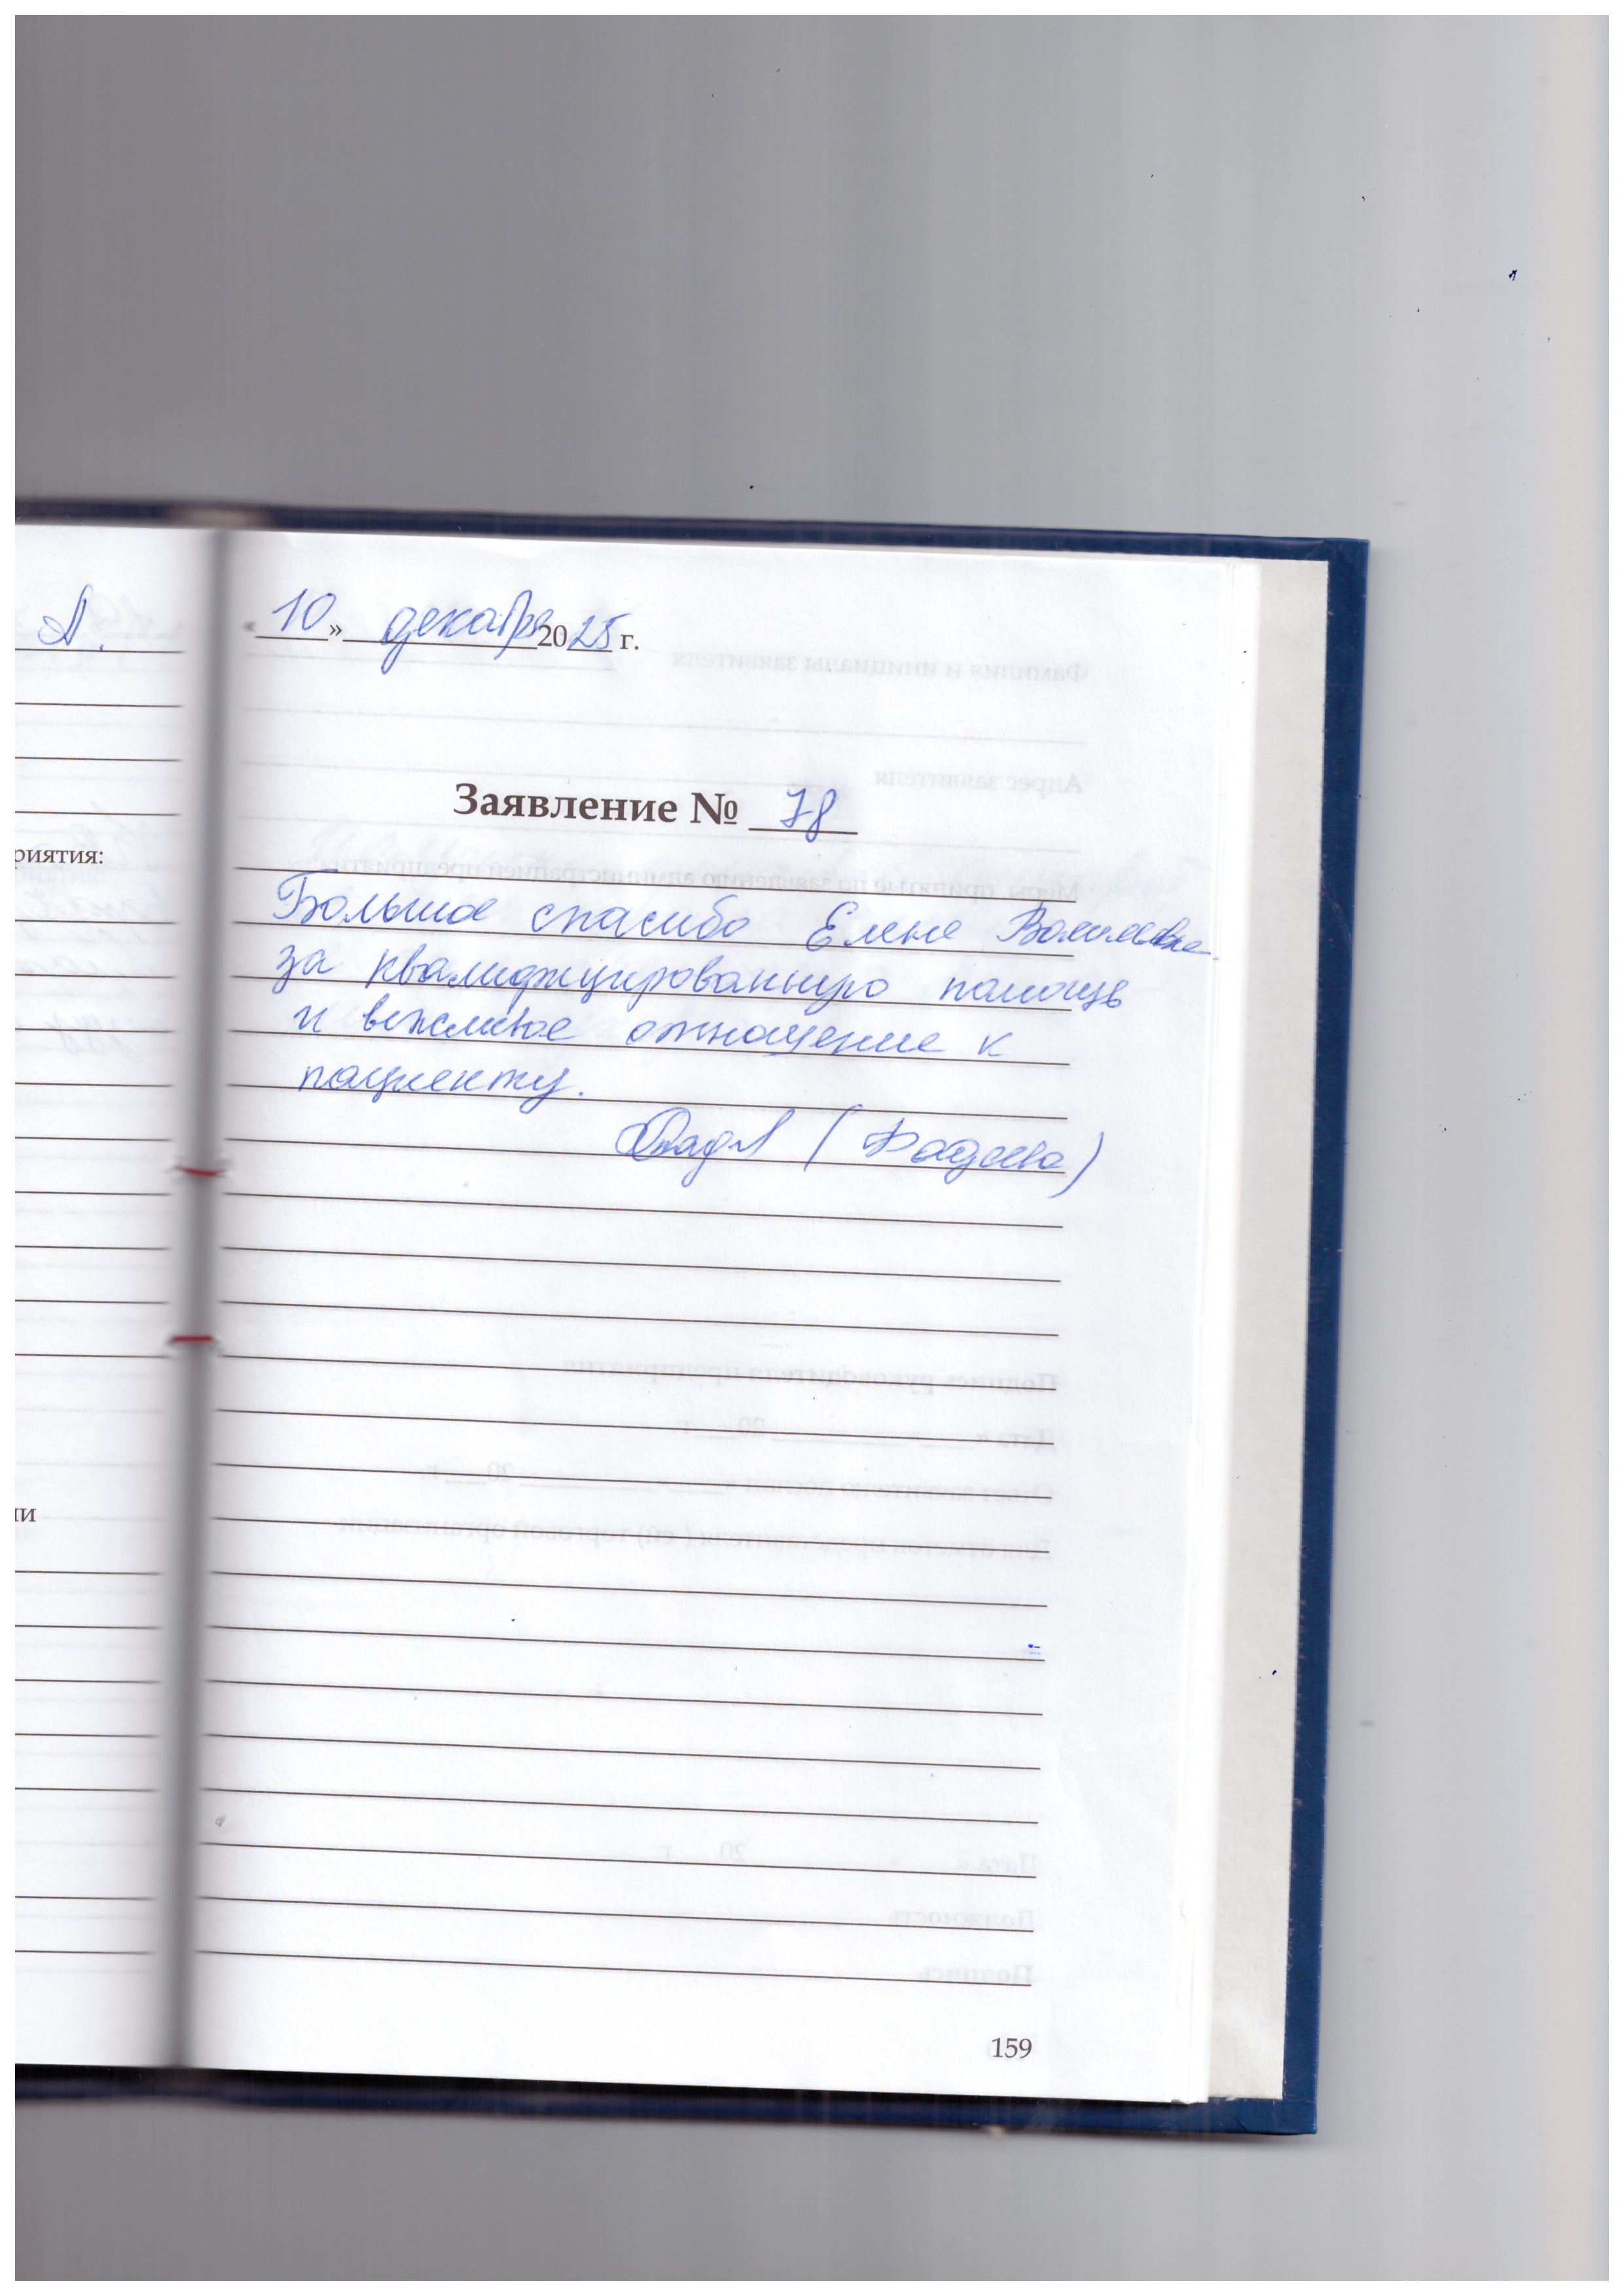 А.
риятия:
ии
«10» декабря 2025 г.
Заявление № 78
Большое спасибо Елене
за квалифицированную помощь
и вежливое отношение к
пациенту.
159